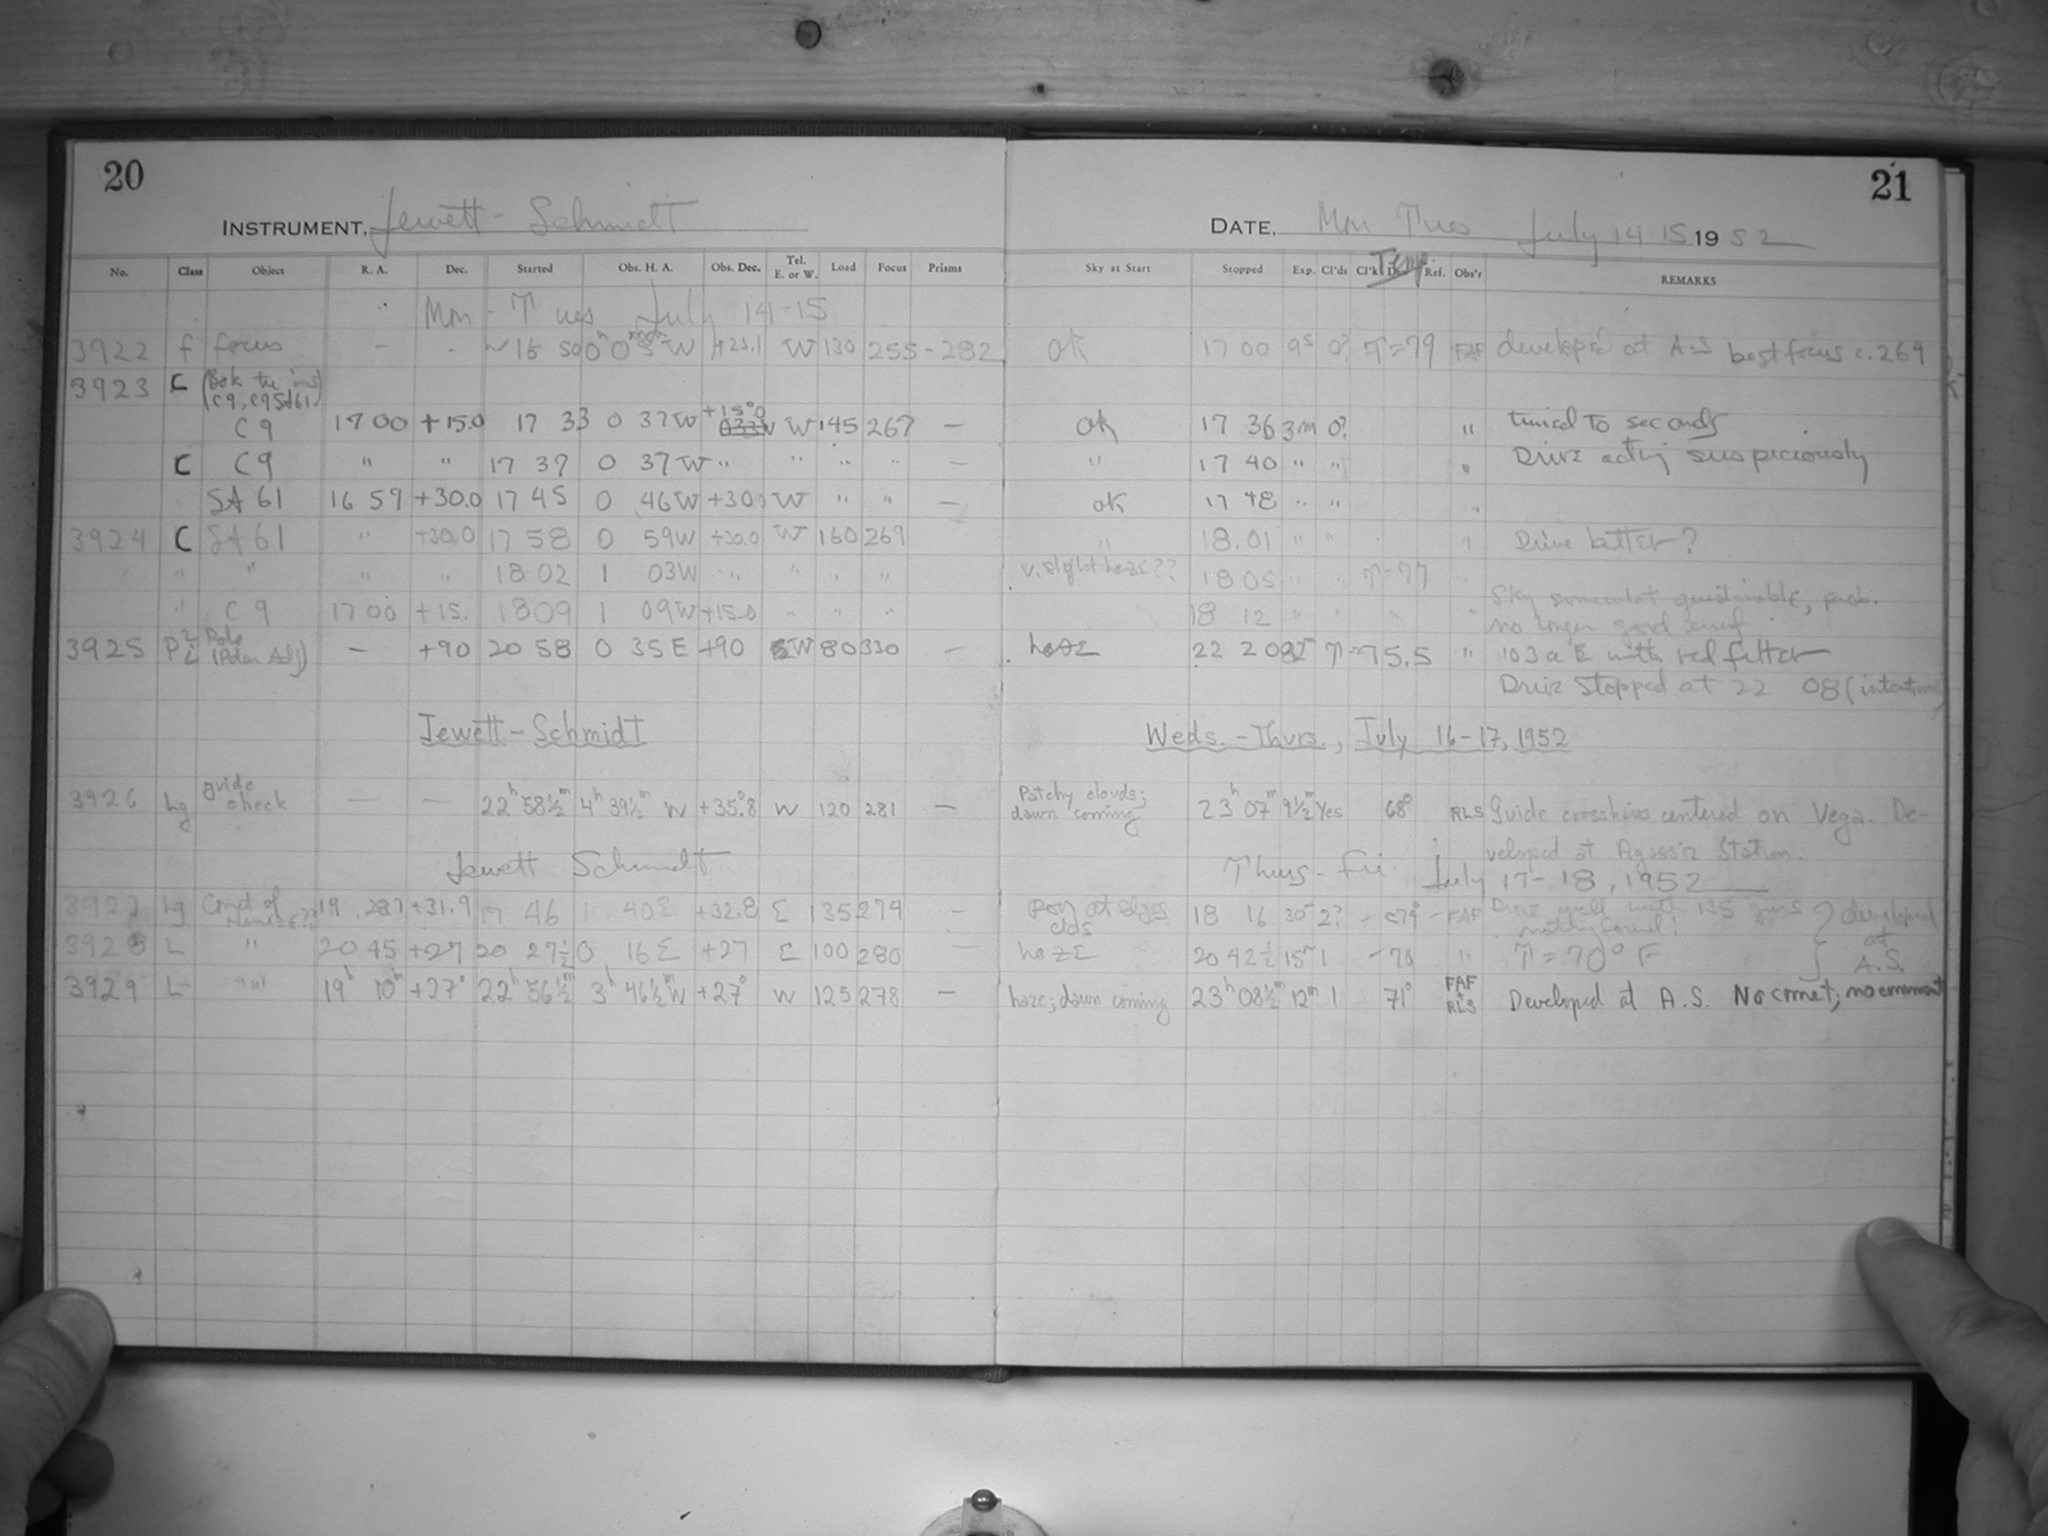 20
21
INSTRUMENT, Jewett - Schmidt
DATE, Mon Tues July 14 15 1952
No. Class Object R. A. Dec. Started Obs. H. A. Obs. Dec. Tel. E. or W. Load Focus Prisms Sky at Start Stopped Exp. Cl'ds Temp Ref. Obs'r REMARKS
Mon - Tues July 14-15
3922 f focus - - ~16 50 0 0 W +25.1 W 130 255-282 ok 17 00 9s 0? T=79 FAF developed at A.S best focus c.264
3923 C
(C9, C9, SA61)
C9 17 00 +15.0 17 33 0 37W +15°.0 W 145 267 - ok 17 36 3m 0? " timed to seconds
C C9 " " 17 37 0 37W " " " " - " 17 40 " " " Drive acting suspiciously
SA 61 16 59 +30.0 17 45 0 46W +30 W " " - ok 17 48 " " "
3924 C SA 61 " +30.0 17 58 0 59W +30.0 W 160 269 " 18.01 " " " Drive better?
" " " " 18 02 1 03W " " " " v. slight haze?? 18 05 " " T=77 "
" C9 17 00 +15. 18 09 1 09W +15.0 " " " 18 12 " " " " Sky somewhat questionable, prob.
no longer good
3925 P Pole (Polar Adj) - +90 20 58 0 35E +90 W 80 330 - haze 22 20 82m T=75.5 " 103aE with red filter
Drive stopped at 22 08 (intentional)
Jewett-Schmidt Weds.-Thurs., July 16-17, 1952
3926 Lg guide check — — 22h 58½m 4h 39½m W +35°.8 W 120 281 — Patchy clouds; dawn coming 23h 07m 9½m Yes 68° RLS Guide crosshairs centered on Vega. De-
veloped at Agassiz Station.
Jewett Schmidt Thurs - Fri July 17-18, 1952
3927 Lg Comet of 19 287 +31.9 17 46 1 40E +32.8 E 135 279 - at edges clds 18 16 30m 2? 79° FAF Drive well with 135 gms } developed
3928 L " 20 45 +27 20 27½ 0 16E +27 E 100 280 - haze 20 42½ 15m 1 -70 " T=70°F at
A.S.
3929 L " 19h 10m +27° 22h 56½m 3h 46½m W +27° W 125 278 - haze; dawn coming 23h 08½m 12m 1 71° FAF + RLS Developed at A.S. No comet; no comment